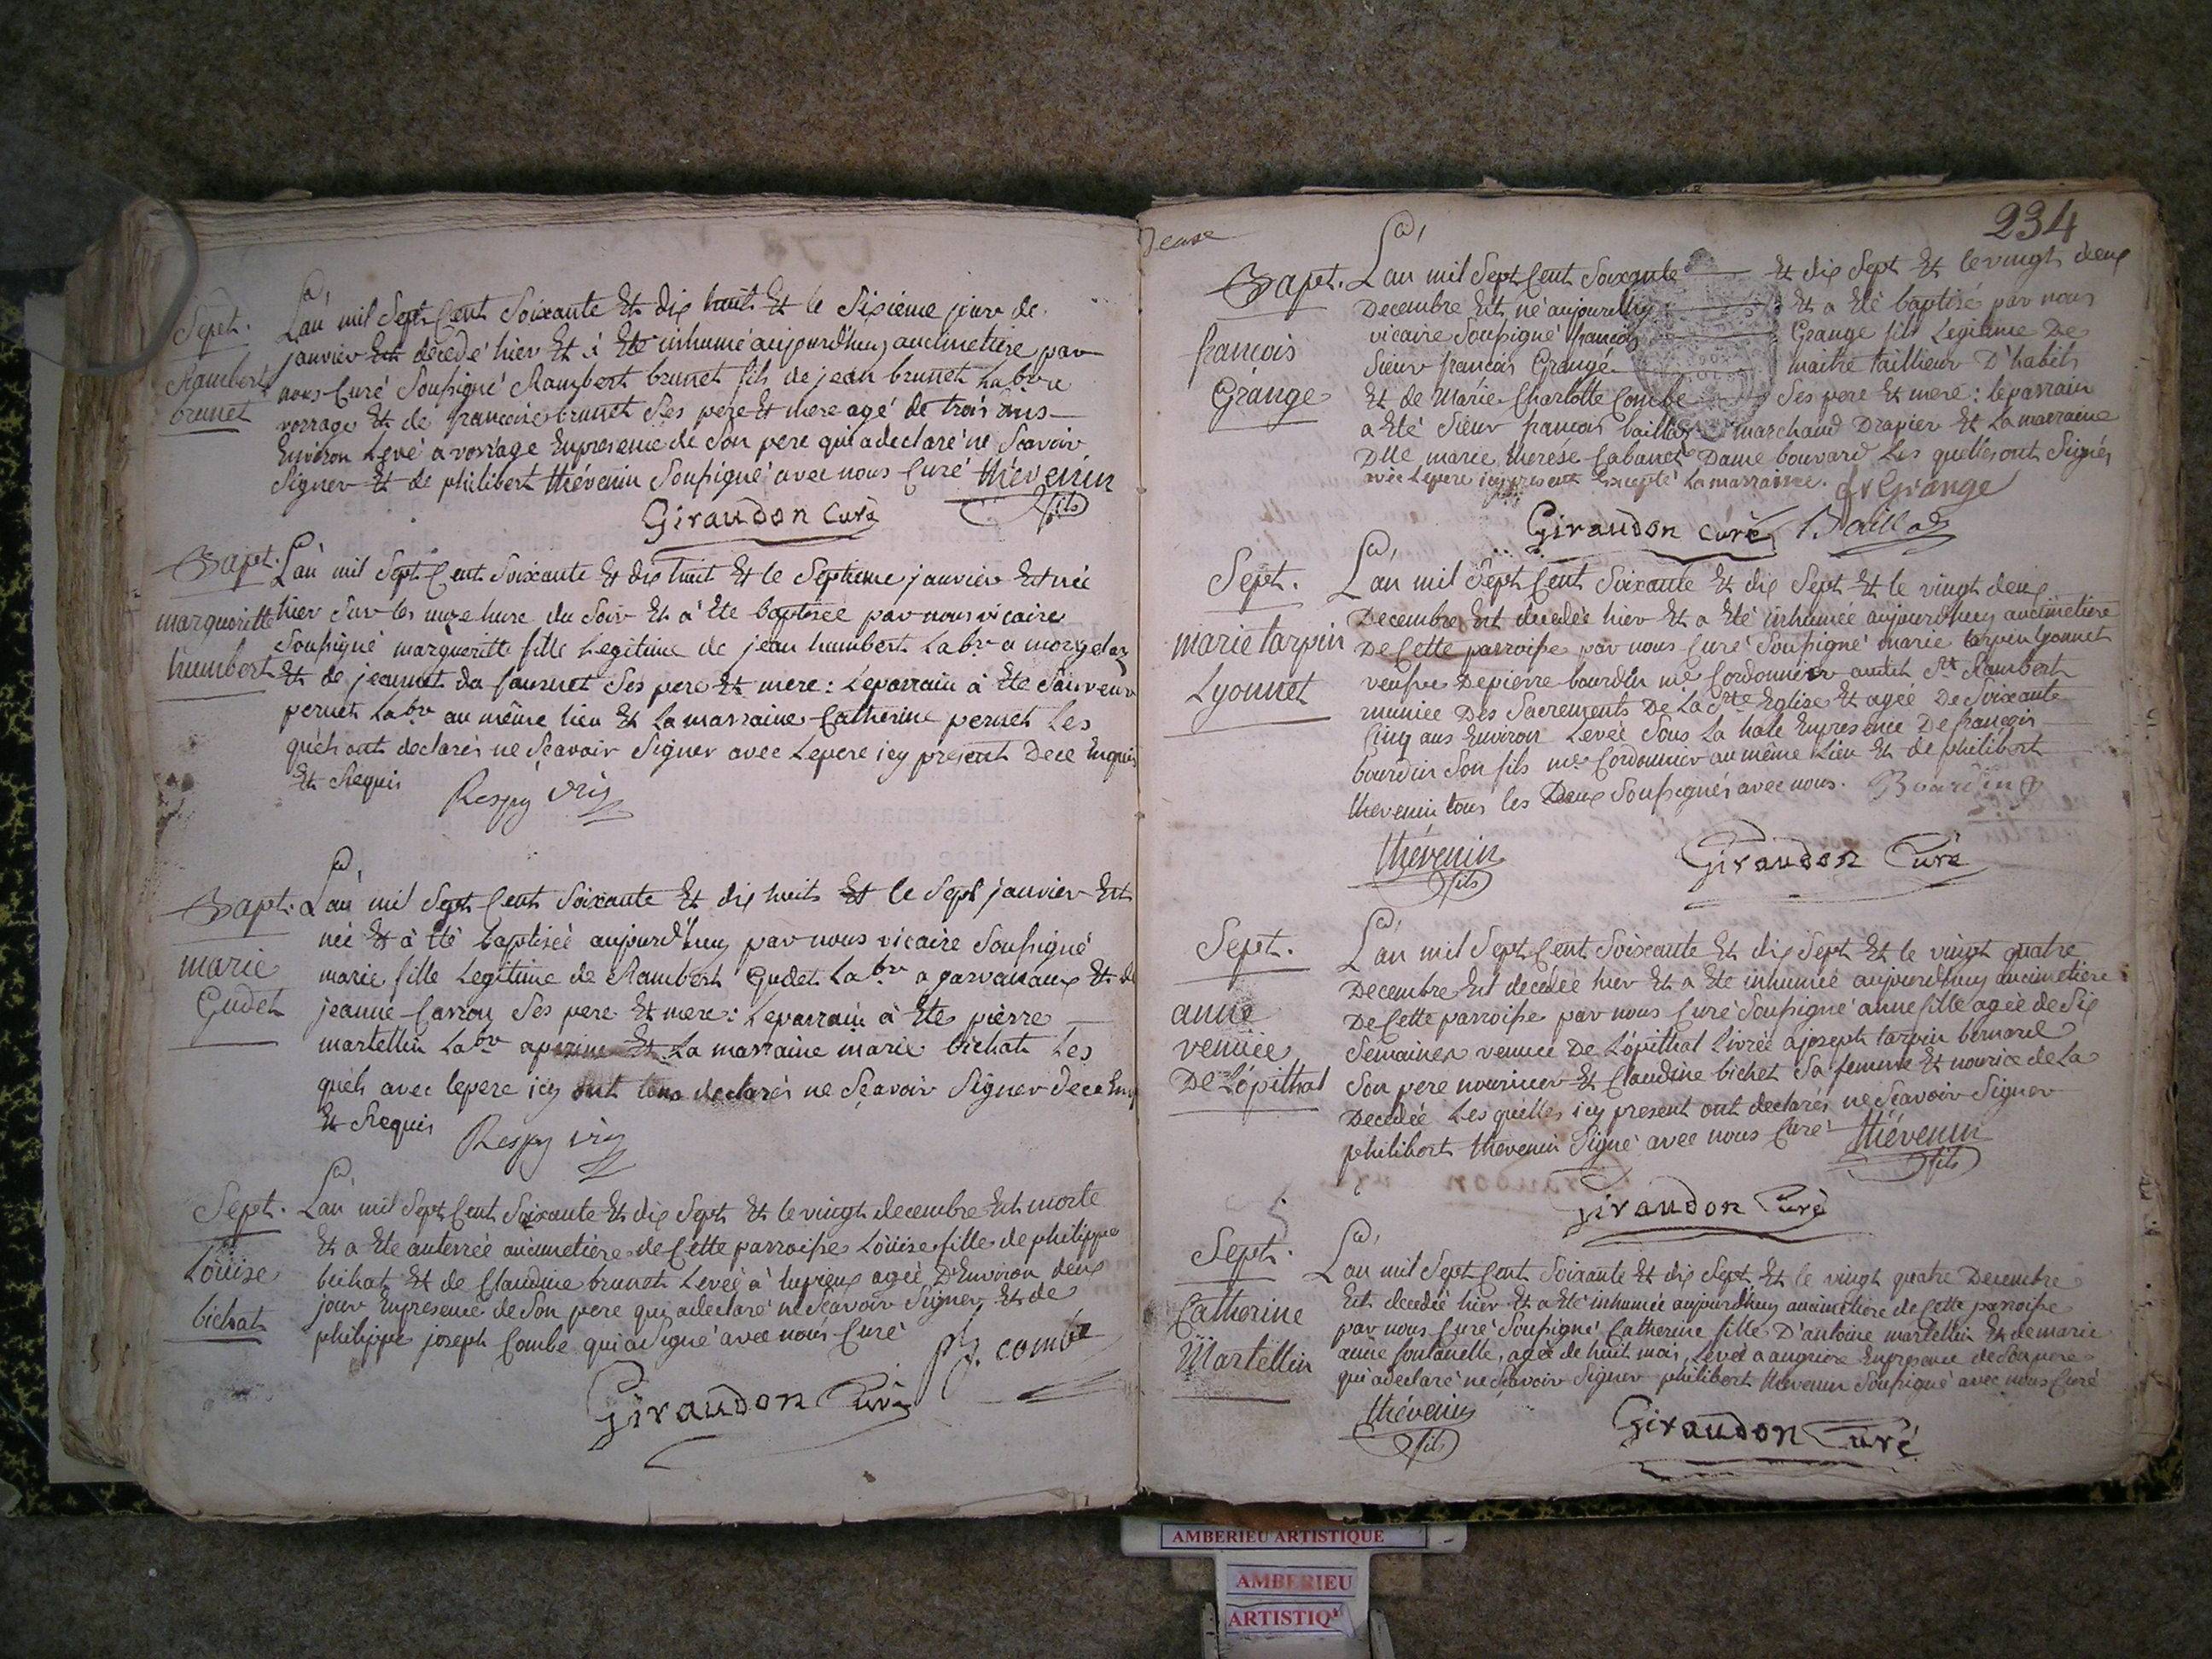 Sept.
Rambert
brunet
L'an mil Sept Cent Soixante Et dix huit Et le Sixieme jour de
janvier Est decedé hier Et à Eté inhumé aujourd'huy au cimetiere par
nous Curé Soussigné Rambert brunet fils de jean brunet Labvre
vorrage Et de francoise brunet Ses pere Et mere agé de trois ans
Environ Levé a vorrage Enpresence de Son pere qui a declaré ne Scavoir
Signer Et de philibert thévenin Soussigné avec nous Curé thevenin
fils
Giraudon Curé
Bapt.
margueritte
humbert
L'an mil Sept Cent Soixante Et dix huit Et le Septieme janvier Est née
hier Sur les onze hure du Soir Et à Eté baptisée par nous vicaire
Soussigné margueritte fille Legitime de jean humbert Labr a
Et de jeannet da Ses pere Et mere : Leparrain à Eté Sauveur
pernet Labr au même lieu Et La marraine Catherine pernet Les
quels ont declarés ne Sçavoir Signer avec Lepere icy present Dece Enquis
Et Requis
Respy vric
Bapt.
marie
Gudet
L'an mil Sept Cent Soixante Et dix huit Et le Sept janvier Est
née Et à Eté baptiseé aujourd'huy par nous vicaire Soussigné
marie fille Legitime de Rambert Gudet Labr a Et de
jeanne Carron Ses pere Et mere : Leparrain à Eté pierre
martellin Labr Et La marraine marie bichat Les
quels avec lepere icy ont tous declarés ne Sçavoir Signer dece Enq
Et Requis
Respy vric
Sept.
Loüise
bichat
L'an mil Sept Cent Soixante Et dix Sept Et le vingt decembre Est morte
Et a Eté anterrée au cimetiere de Cette parroisse Loüise fille de philippe
bichat Et de Claudine brunet Leveé à lupieux ageé D'Environ deux
jour Enpresence de Son pere qui adeclaré ne Scavoir Signer Et de
philippe joseph Combe qui a Signé avec nous Curé
pj. combe
Giraudon Curé
234
Bapt.
francois
Grange
L'an mil Sept Cent Soixante Et dix Sept Et le vingt deux
Decembre Est né aujourdhuy Et a Eté baptisé par nous
vicaire Soussigné francois Grange fils Legitime De
Sieur francois Grange maitre taillieur D'habits
Et de Marie Charlotte Combe Ses pere Et mere : leparrain
a Eté Sieur francois baillod marchand Drapier Et La marraine
Dlle marie therese Cabanet Dame bouvard Les quelles ont Signés
avec Lepere icy present Excepté La marraine. fr Grange
Giraudon curé Baillod
Sept.
marie tarpin
Lyonnet
L'an mil Sept Cent Soixante Et dix Sept Et le vingt deux
Decembre Est decedée hier Et a Eté inhumée aujourdhuy au cimetiere
De Cette parroisse par nous Curé Soussigné marie tarpin lyonnet
veufve De pierre bourdin me Cordonnier audit St Rambert
muniee Des Sacrements De La Ste Eglise Et agée De Soixante
Cinq ans Environ Levée Sous La hale Enpresence De francois
bourdin Son fils me Cordonnier au même Lieu Et de philibert
thevenin tous les Deux Soussignés avec nous. Bourdin
thévenin
fils
Giraudon Curé
Sept.
anne
venüe
De L'ópithal
L'an mil Sept Cent Soixante Et dix Sept Et le vingt quatre
Decembre Est decedée hier Et a Eté inhumée aujourdhuy au cimetiere
De Cette parroisse par nous Curé Soussigné anne fille agée de Six
Semaines venue De L'ópithal Livrée a joseph tarpin bernard
Son pere nouricier Et Claudine bichet Sa femme Et nourice de La
Decedée Les quelles icy present ont declarés ne Scavoir Signer
philibert thevenin Signé avec nous Curé thévenin
fils
Giraudon Curé
Sept.
Catherine
Martellin
L'an mil Sept Cent Soixante Et dix Sept Et le vingt quatre Decembre
Est decedée hier Et a Eté inhumée aujourdhuy au cimetiere de Cette parroisse
par nous Curé Soussigné Catherine fille D'antoine martellin Et de marie
anne fontanelle, agée de huit mois, Leveé a angriere Enpresence de Son pere
qui adeclaré ne Scavoir Signer philibert thevenin Soussigné avec nous Curé
thévenin
fils
Giraudon Curé
AMBERIEU ARTISTIQUE
AMBERIEU
ARTISTIQ